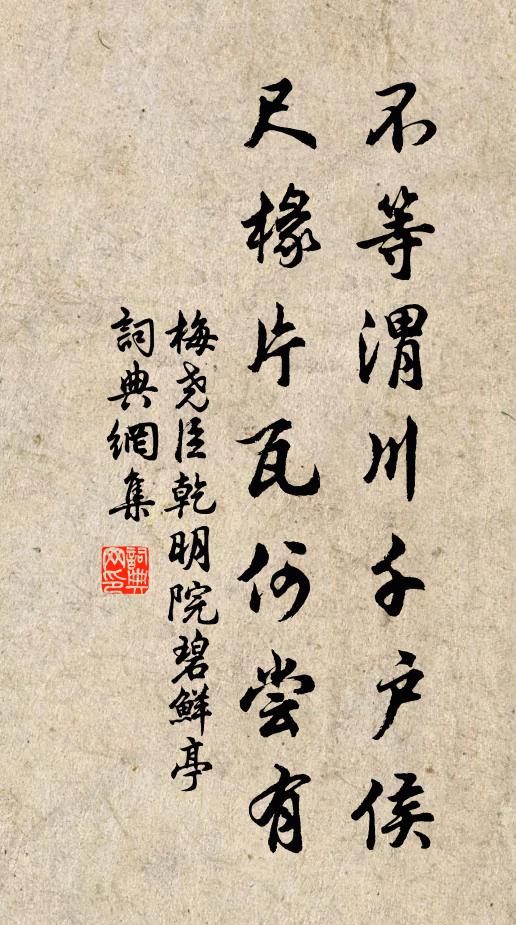 不等渭川千户侯
尺椽片瓦何尝有
梅尧臣乾明院碧鲜亭
詞典網集
詞典网印